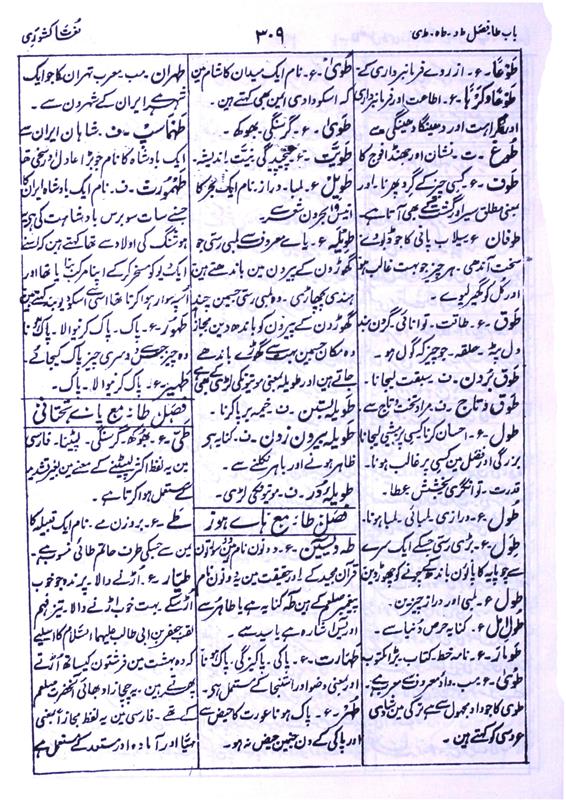 باب طا فصل ط و۔ ط ہ۔ ط ی
۳۰۹
لغت کشوری
طوعاً۔ ع۔ از روے فرمانبرداری کے
طوعاً وکرہاً۔ ع۔ اطاعت اور فرمانبرداری
اور کراہت اور دھینگا دھینگی سے
طوغ۔ ت۔ نشان اور جھنڈا فوج کا
طوف۔ ع۔ کسی چیز کے گرد پھرنا۔ اور
بمعنی مطلق سیر اور گشت کے بھی آتا ہے
طوفان۔ ع۔ سیلاب پانی کا جو ڈبو دے
سخت آندھی۔ ہر چیز جو بہت غالب ہو
اور کل کو گھیر لیوے۔
طوق۔ ع۔ طاقت۔ توانائی۔ گردن بند
حلقہ۔ جو چیز کہ گول ہو۔
طوق بردن۔ ف۔ سبقت لیجانا۔
طوق و تاج۔ ف۔ مراد تخت و تاج سے
طول۔ ع۔ احسان کرنا کسی پر بیشی لیجانا
بزرگی اور فضل میں کسی پر غالب ہونا۔
قدرت۔ توانگری۔ بخشش۔ عطا۔
طول۔ ع۔ درازی۔ لمبائی۔ لمبا ہونا۔
طول۔ ع۔ بڑی رسّی جسکے ایک سرے
سے چوپایہ کا پاؤں باندھ کر چرنے کو چھوڑ دیں
طول۔ ع۔ لمبی اور دراز چیزیں۔
طول امل۔ ع۔ کنایہ حرص دنیا سے۔
طومار۔ ع۔ نامہ۔ خط۔ کتاب۔ بڑا مکتوب
طوی کا جو واو مجہول سے ہے ترکی میں شادی
عروسی کو کہتے ہیں۔
طویٰ۔ ع۔ نام ایک میدان کا شام میں
کہ اسکو وادی ایمن بھی کہتے ہیں۔
طویٰ۔ ع۔ گرسنگی۔ بھوکھ۔
طویت۔ ع۔ پیچیدگی۔ نیت۔ اندیشہ۔
طویل۔ ع۔ لمبا۔ دراز۔ نام ایک بحر کا
انیس بحروں شعر سے۔
طویلہ۔ ع۔ یاے معروف سے لمبی رسّی جو
گھوڑوں کے پیروں میں باندھتے ہیں
ہندی پچھاڑی۔ وہ لمبی رسّی جسمیں چند
گھوڑوں کے پیروں کو باندھ دیں مجازاً
وہ مکان جسمیں بہت سے گھوڑے باندھے
جاتے ہیں اور طویلہ بمعنی موتیوں کی لڑی کے بھی ہے
طویلہ بستن۔ ف۔ خیمہ برپا کرنا۔
طویلہ بیرون زدن۔ ف۔ کنایہ ہے
ظاہر ہونے اور باہر نکلنے سے۔
طویلۂ دُر۔ ف۔ موتیوں کی لڑی۔
فصل طا مع ہاے ہوز
طہ و یٰسین۔ ع۔ دونوں نام دو سورتوں
قرآن مجید کے اور حقیقت میں یہ دونوں نام
پیغمبر صلعم کے ہیں طہ کنایہ ہے یا طاہر سے
اور یٰس اشارہ ہے یا سید سے۔
طہارت۔ ع۔ پاکی۔ پاکیزگی۔ پاک ہونا
اور بمعنی وضو اور استنجا کے مستعمل ہے۔
طہر۔ ع۔ پاک ہونا عورت کا حیض سے
اور پاکی کے دن جنمیں حیض نہ ہو۔
طہران۔ معرب تہران کا جو ایک
شہر ہے ایران کے شہروں سے۔
طہماسپ۔ ف۔ شاہان ایران سے
ایک بادشاہ کا نام جو بڑا عادل و سخی تھا
طہمورث۔ ف۔ نام ایک بادشاہ ایران کا
جسنے سات سو برس بادشاہت کی ہے یہ
ہوشنگ کی اولاد سے تھا کہتے ہیں کہ اسنے
ایک دیو کو مسخر کر کے اپنا مرکب بنایا تھا اور
اسپر سوار ہوا کرتا تھا اسی سے اسکو دیو بند کہتے ہیں
طہور۔ ع۔ پاک۔ پاک کرنیوالا۔ پاک ہونا
وہ چیز جس سے دوسری چیز پاک کیجائے۔
طہیر۔ ع۔ پاک کرنیوالا۔ پاک۔
فصل طا مع یاے تحتانی
طیّ۔ ع۔ بھوکھ۔ گرسنگی۔ لپیٹنا۔ فارسی
میں یہ لفظ اکثر لپیٹنے کے معنے میں بغیر تشدید
کے مستعمل ہوا کرتا ہے۔
طے۔ ع۔ بروزن مے۔ نام ایک قبیلہ کا
یمن سے جسکی طرف حاتم طائی منسوب ہے۔
طیّار۔ ع۔ اُڑنے والا۔ پرندہ جو خوب
اڑ سکے۔ بہت خوب اڑنے والا۔ تیز فہم
لقب جعفر بن ابی طالب علیہما السّلام کا اسلیے
کہ وہ بہشت میں فرشتوں کیساتھ اُڑتے
پھرتے ہیں۔ یہ چچازاد بھائی آنحضرت صلعم
کے تھے۔ فارسی میں یہ لفظ مجازاً بمعنی
مہیّا اور آمادہ اور مستعد کے مستعمل ہے